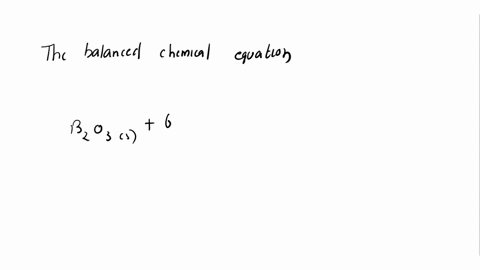 The balanced chemical equation
B₂O₃ (s) + 6